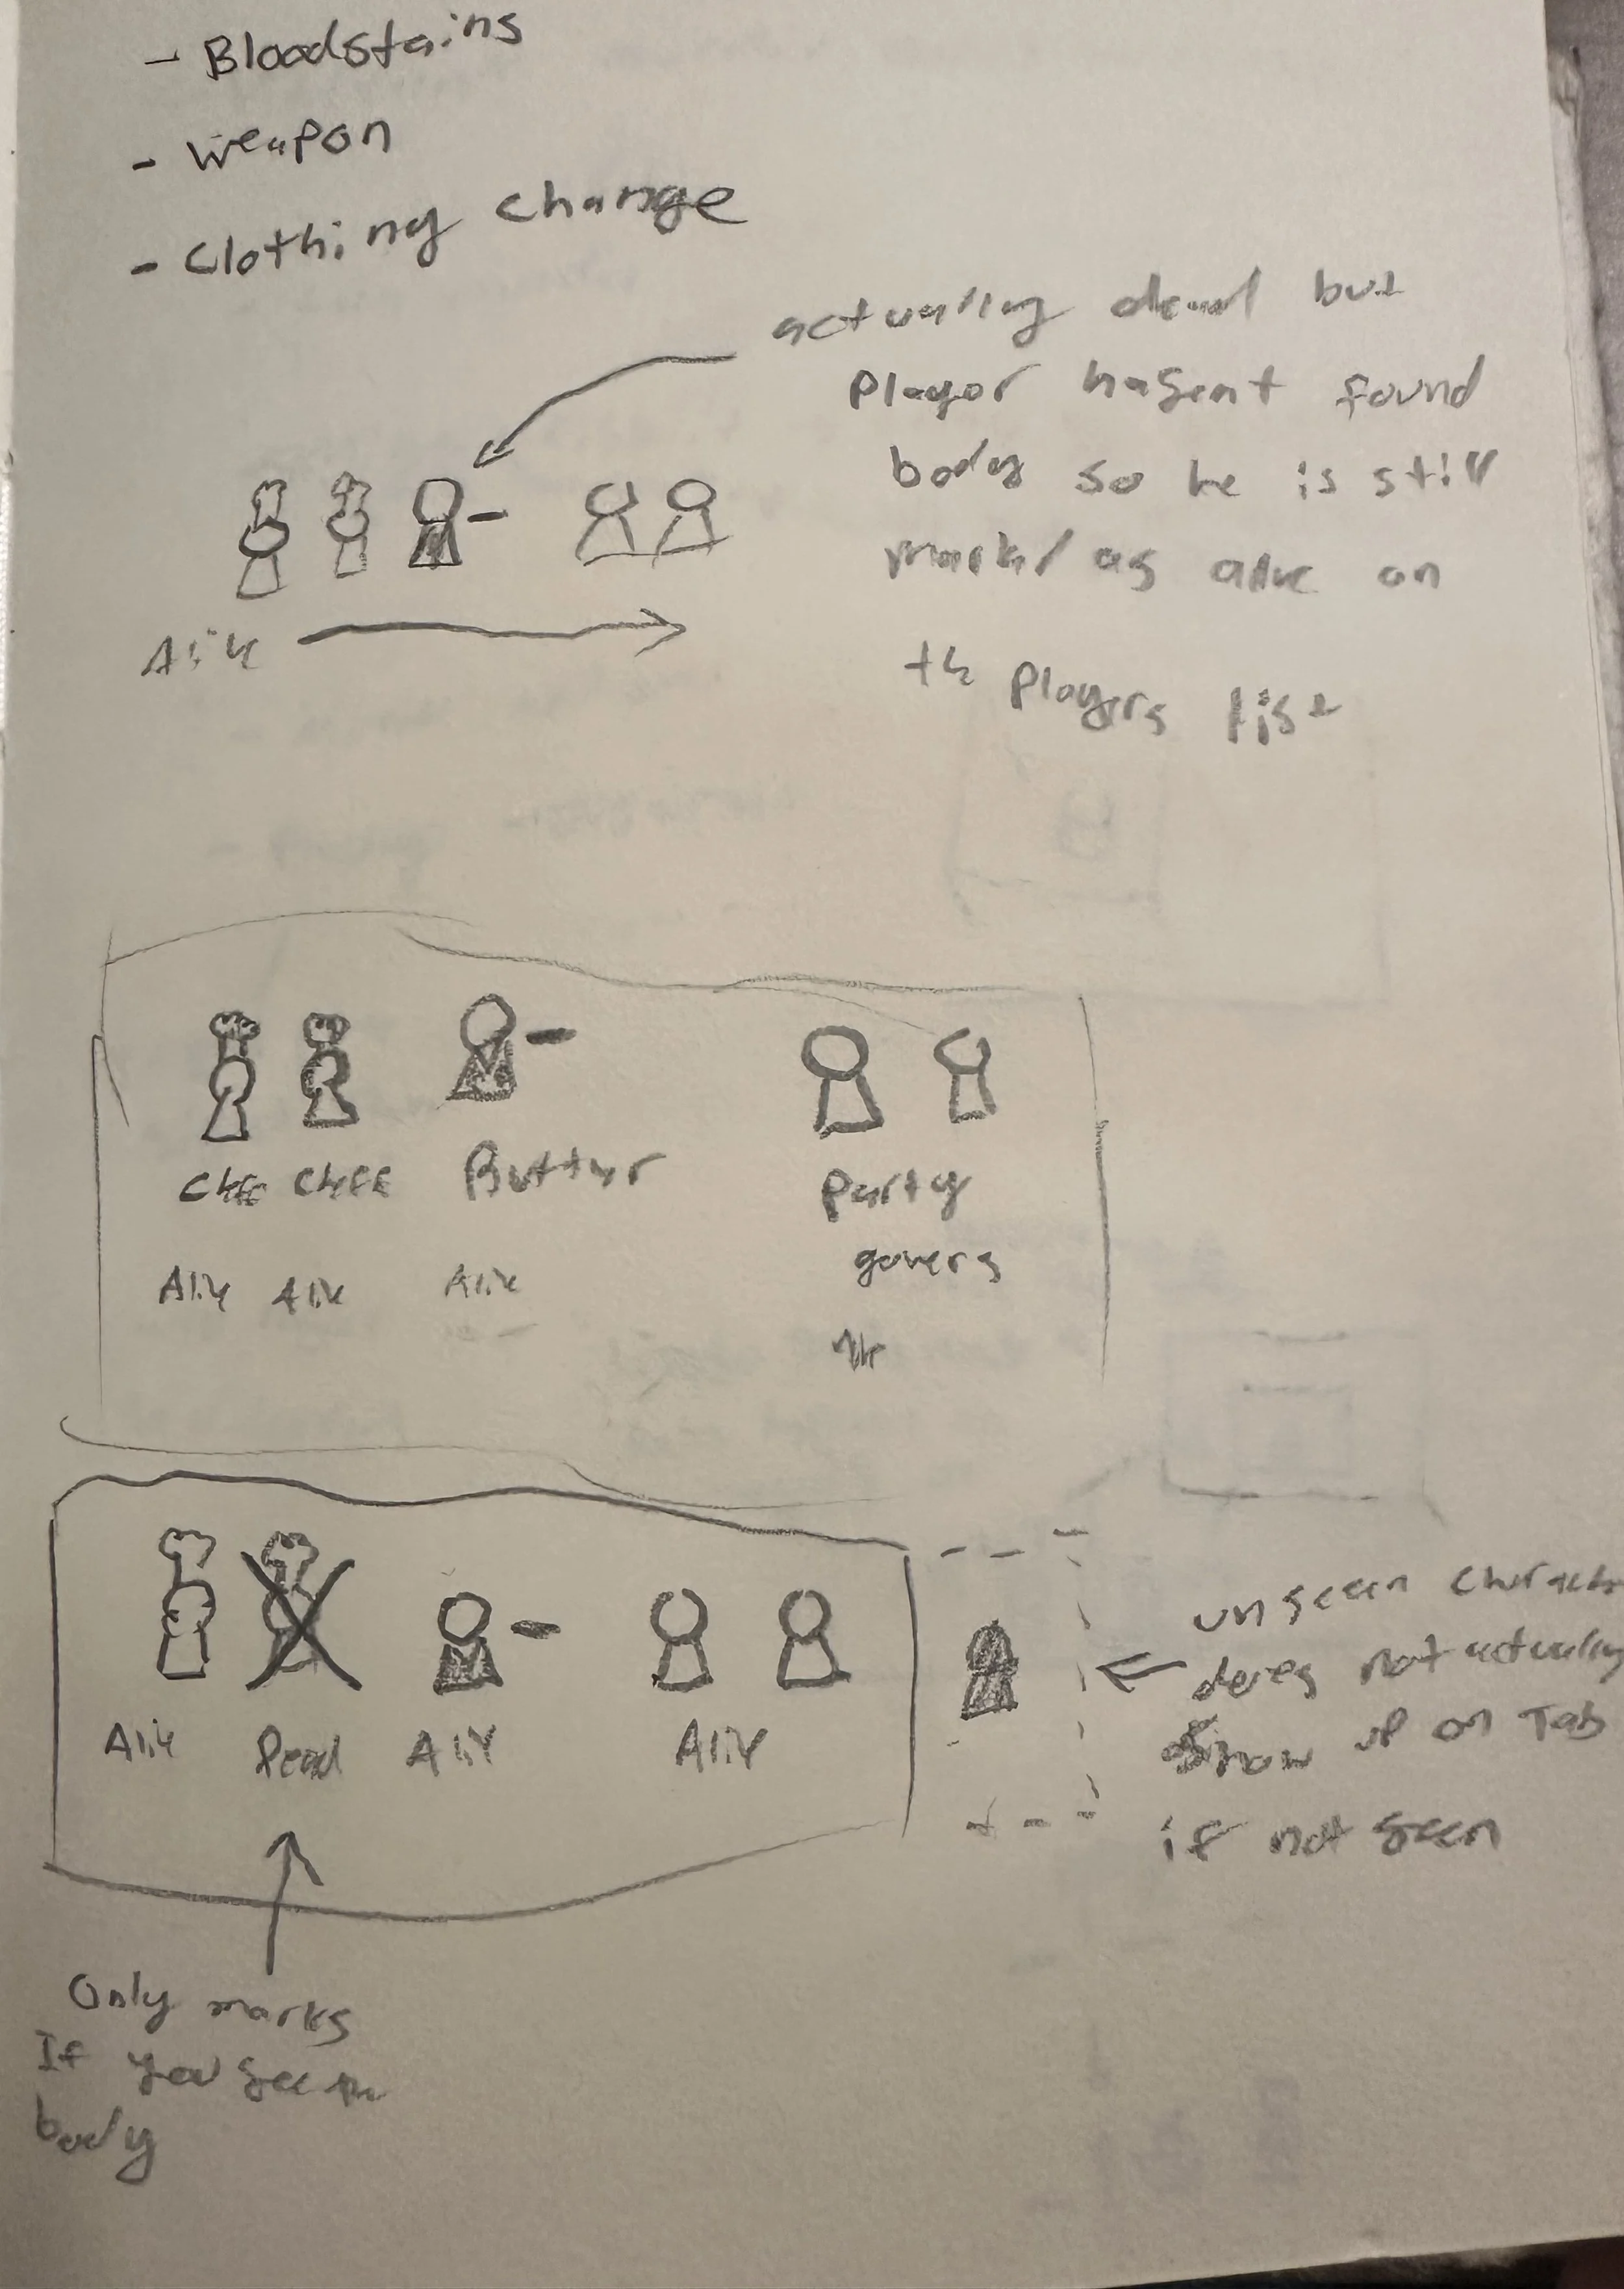 - Bloodstains
- Weapon
- Clothing change
actually dead but
Player hasent found
body so he is still
markd as alive on
the players list
Alive
Chef Chef Buttler Party
goers
Alive Alive Alive
Alive Dead Alive Alive
unseen characte
does not actually
show up on Tab
if not seen
Only marks
If you see the
body